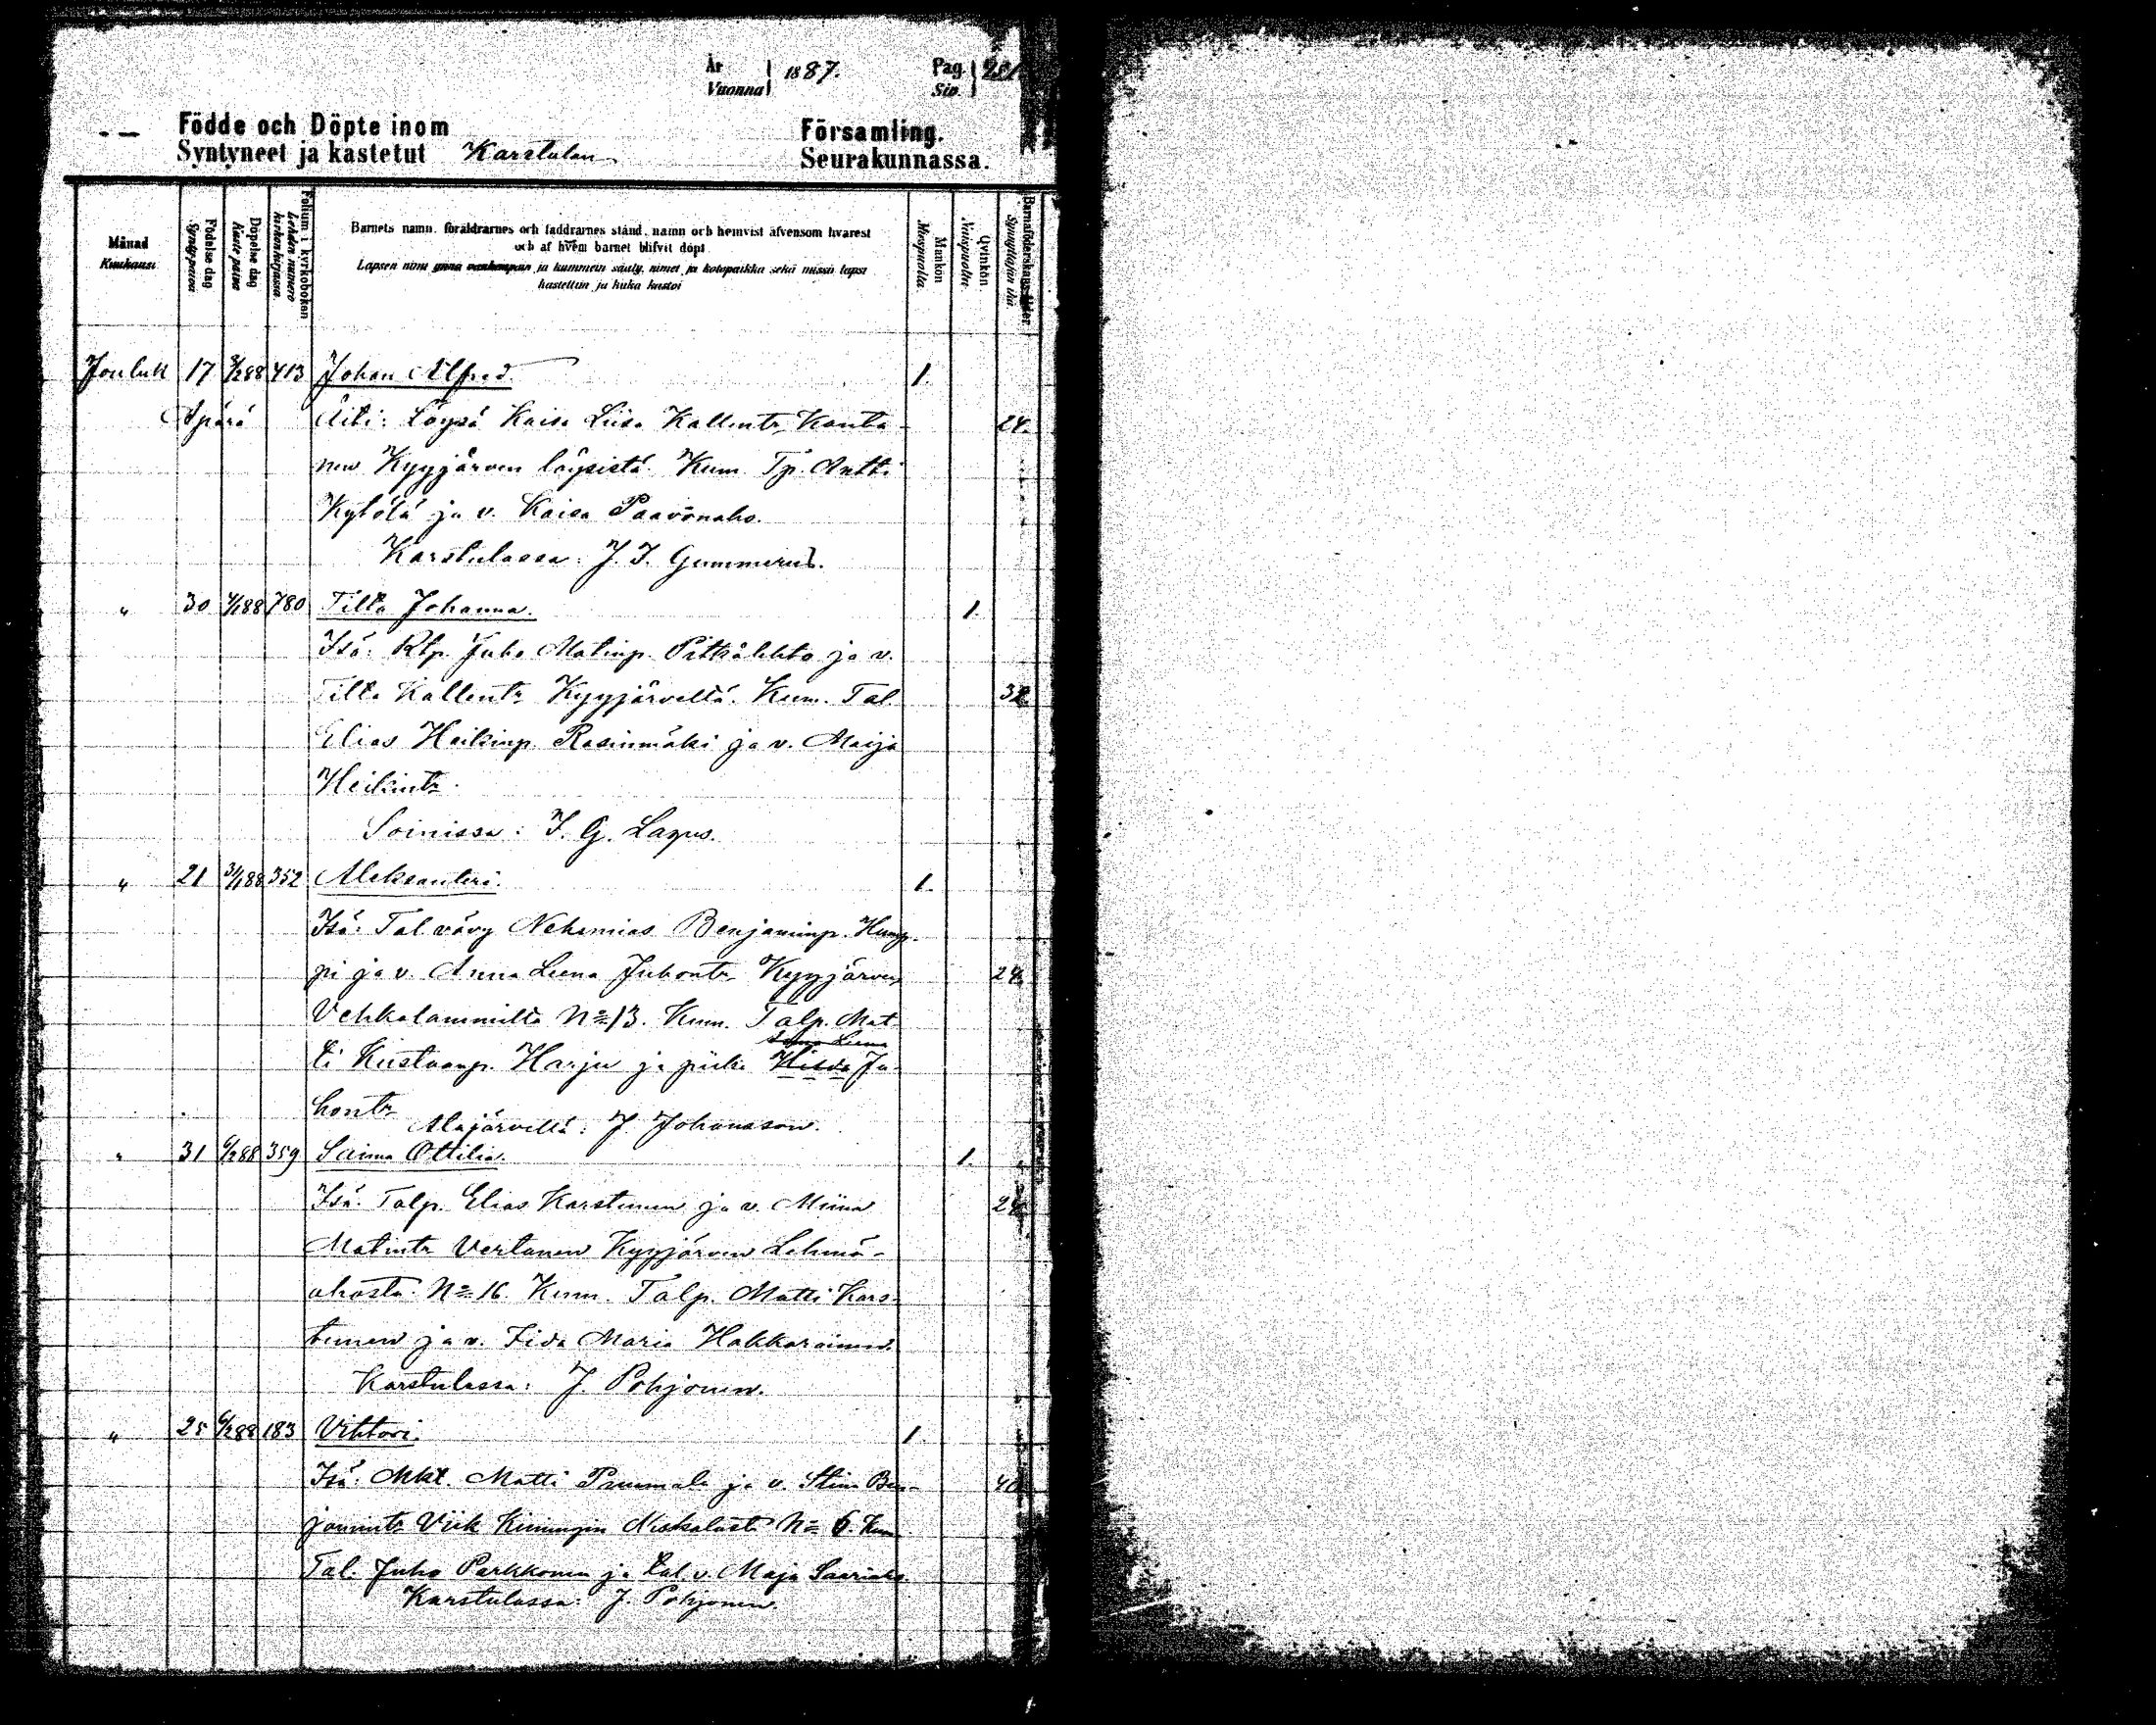 År
Vuonna 1887.
Pag.
Siv.
Födde och Döpte inom Församling.
Syntyneet ja kastetut Karstulan Seurakunnassa.
Månad
Kuukausi
Födelse dag
Synty-päivä
Döpelse dag
Kaste-päivä
Folium i kyrkoboken
Lehden numero kirkonkirjassa
Barnets namn, föräldrarnes och faddrarnes stånd, namn och hemvist äfvensom hvarest
och af hvem barnet blifvit döpt
Lapsen nimi ynnä vanhempain ja kummein sääty, nimet ja kotopaikka sekä missä lapsi
kastettiin ja kuka kastoi
Mankön
Miespuolia.
Qvinkön.
Naispuolia.
Barnaföderskans ålder
Synnyttäjän ikä
Jouluk 17 88 413 Johan Alfred. 1.
Äpärä Äiti: Löysä Kaisa Liisa Kallentr. Konta- 24.
nen Kyyjärven löysistä. Kum. Tp. Antti
Kytölä ja v. Kaisa Paavonaho.
Karstulassa: J. I. Gummerus.
" 30 88 780 Tilta Johanna. 1.
Isä: Rtp. Juho Matinp. Pitkälehto ja v.
Tilta Kallentr. Kyyjärveltä. Kum. Tal. 32
Elias Heikinp. Rasinmäki ja v. Maija
Heikintr.
Soinissa: I. G. Lagus.
" 21 31/1 88 352 Aleksanteri. 1.
Isä: Tal. vävy Nehemias Benjaminp. Hump-
pi ja v. Anna Leena Juhontr. Kyyjärven 24.
Vehkalammilta No 13. Kum. Talp. Mat-
ti Kustaanp. Harju ja piika Hilda Ju-
hontr.
Alajärvellä: J. Johansson.
" 31 6/2 88 359 Saima Ottilia. 1.
Isä: Talp. Elias Karstunen ja v. Miina 24
Matintr. Vertanen Kyyjärven Lehmä-
ahosta No 16. Kum. Talp. Matti Kars-
tunen ja v. Fida Maria Hakkarainen.
Karstulassa: J. Pohjonen.
" 25 6/2 88 183 Vihtori. 1.
Isä: Mkt. Matti ja v. Stina Ben- 40
jamintr. Viik Kimingin No 6. Kum
Tal. Juho Parkkonen ja tal. v. Maja Saariaho.
Karstulassa: J. Pohjonen.